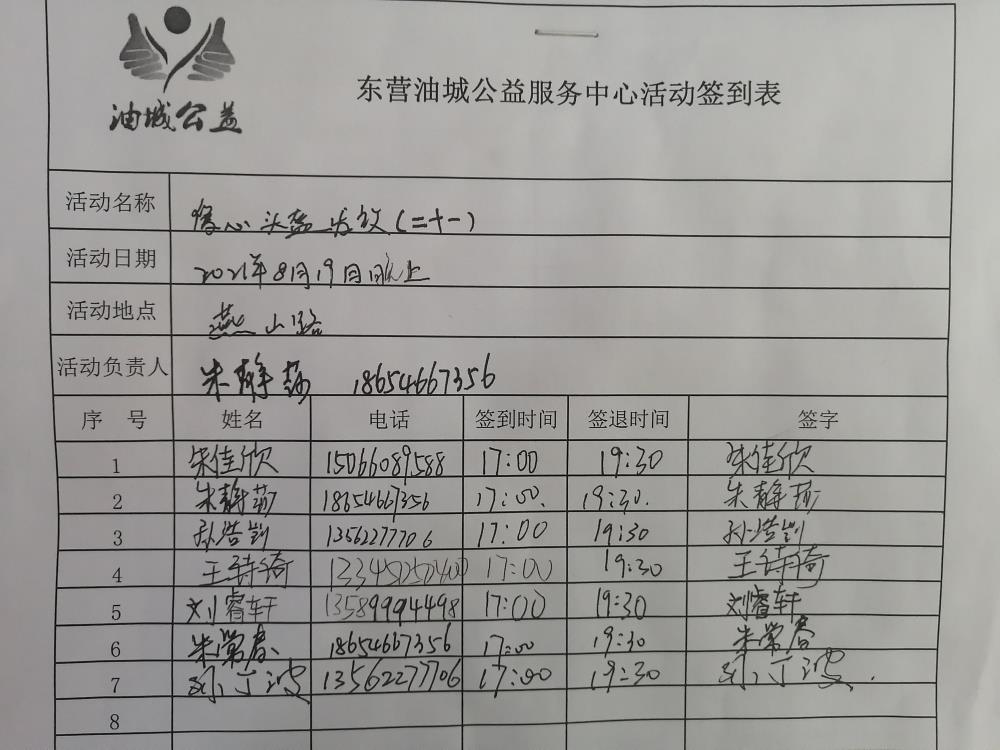 油城公益
东营油城公益服务中心活动签到表
活动名称 爱心头盔发放(二十一)
活动日期 2021年8月19日晚上
活动地点 燕山路
活动负责人 朱静莎 18654667356
序 号 姓名 电话 签到时间 签退时间 签字
1 朱佳欣 15066089588 17:00 19:30 朱佳欣
2 朱静莎 18654667356 17:00. 19:30. 朱静莎
3 孙浩凯 13562277706 17:00 19:30 孙浩凯
4 王诗绮 13345250400 17:00 19:30 王诗绮
5 刘睿轩 13589994498 17:00 19:30 刘睿轩
6 朱常春 18654667356 17:00 19:30 朱常春
7 13562277706 17:00 19:30
8